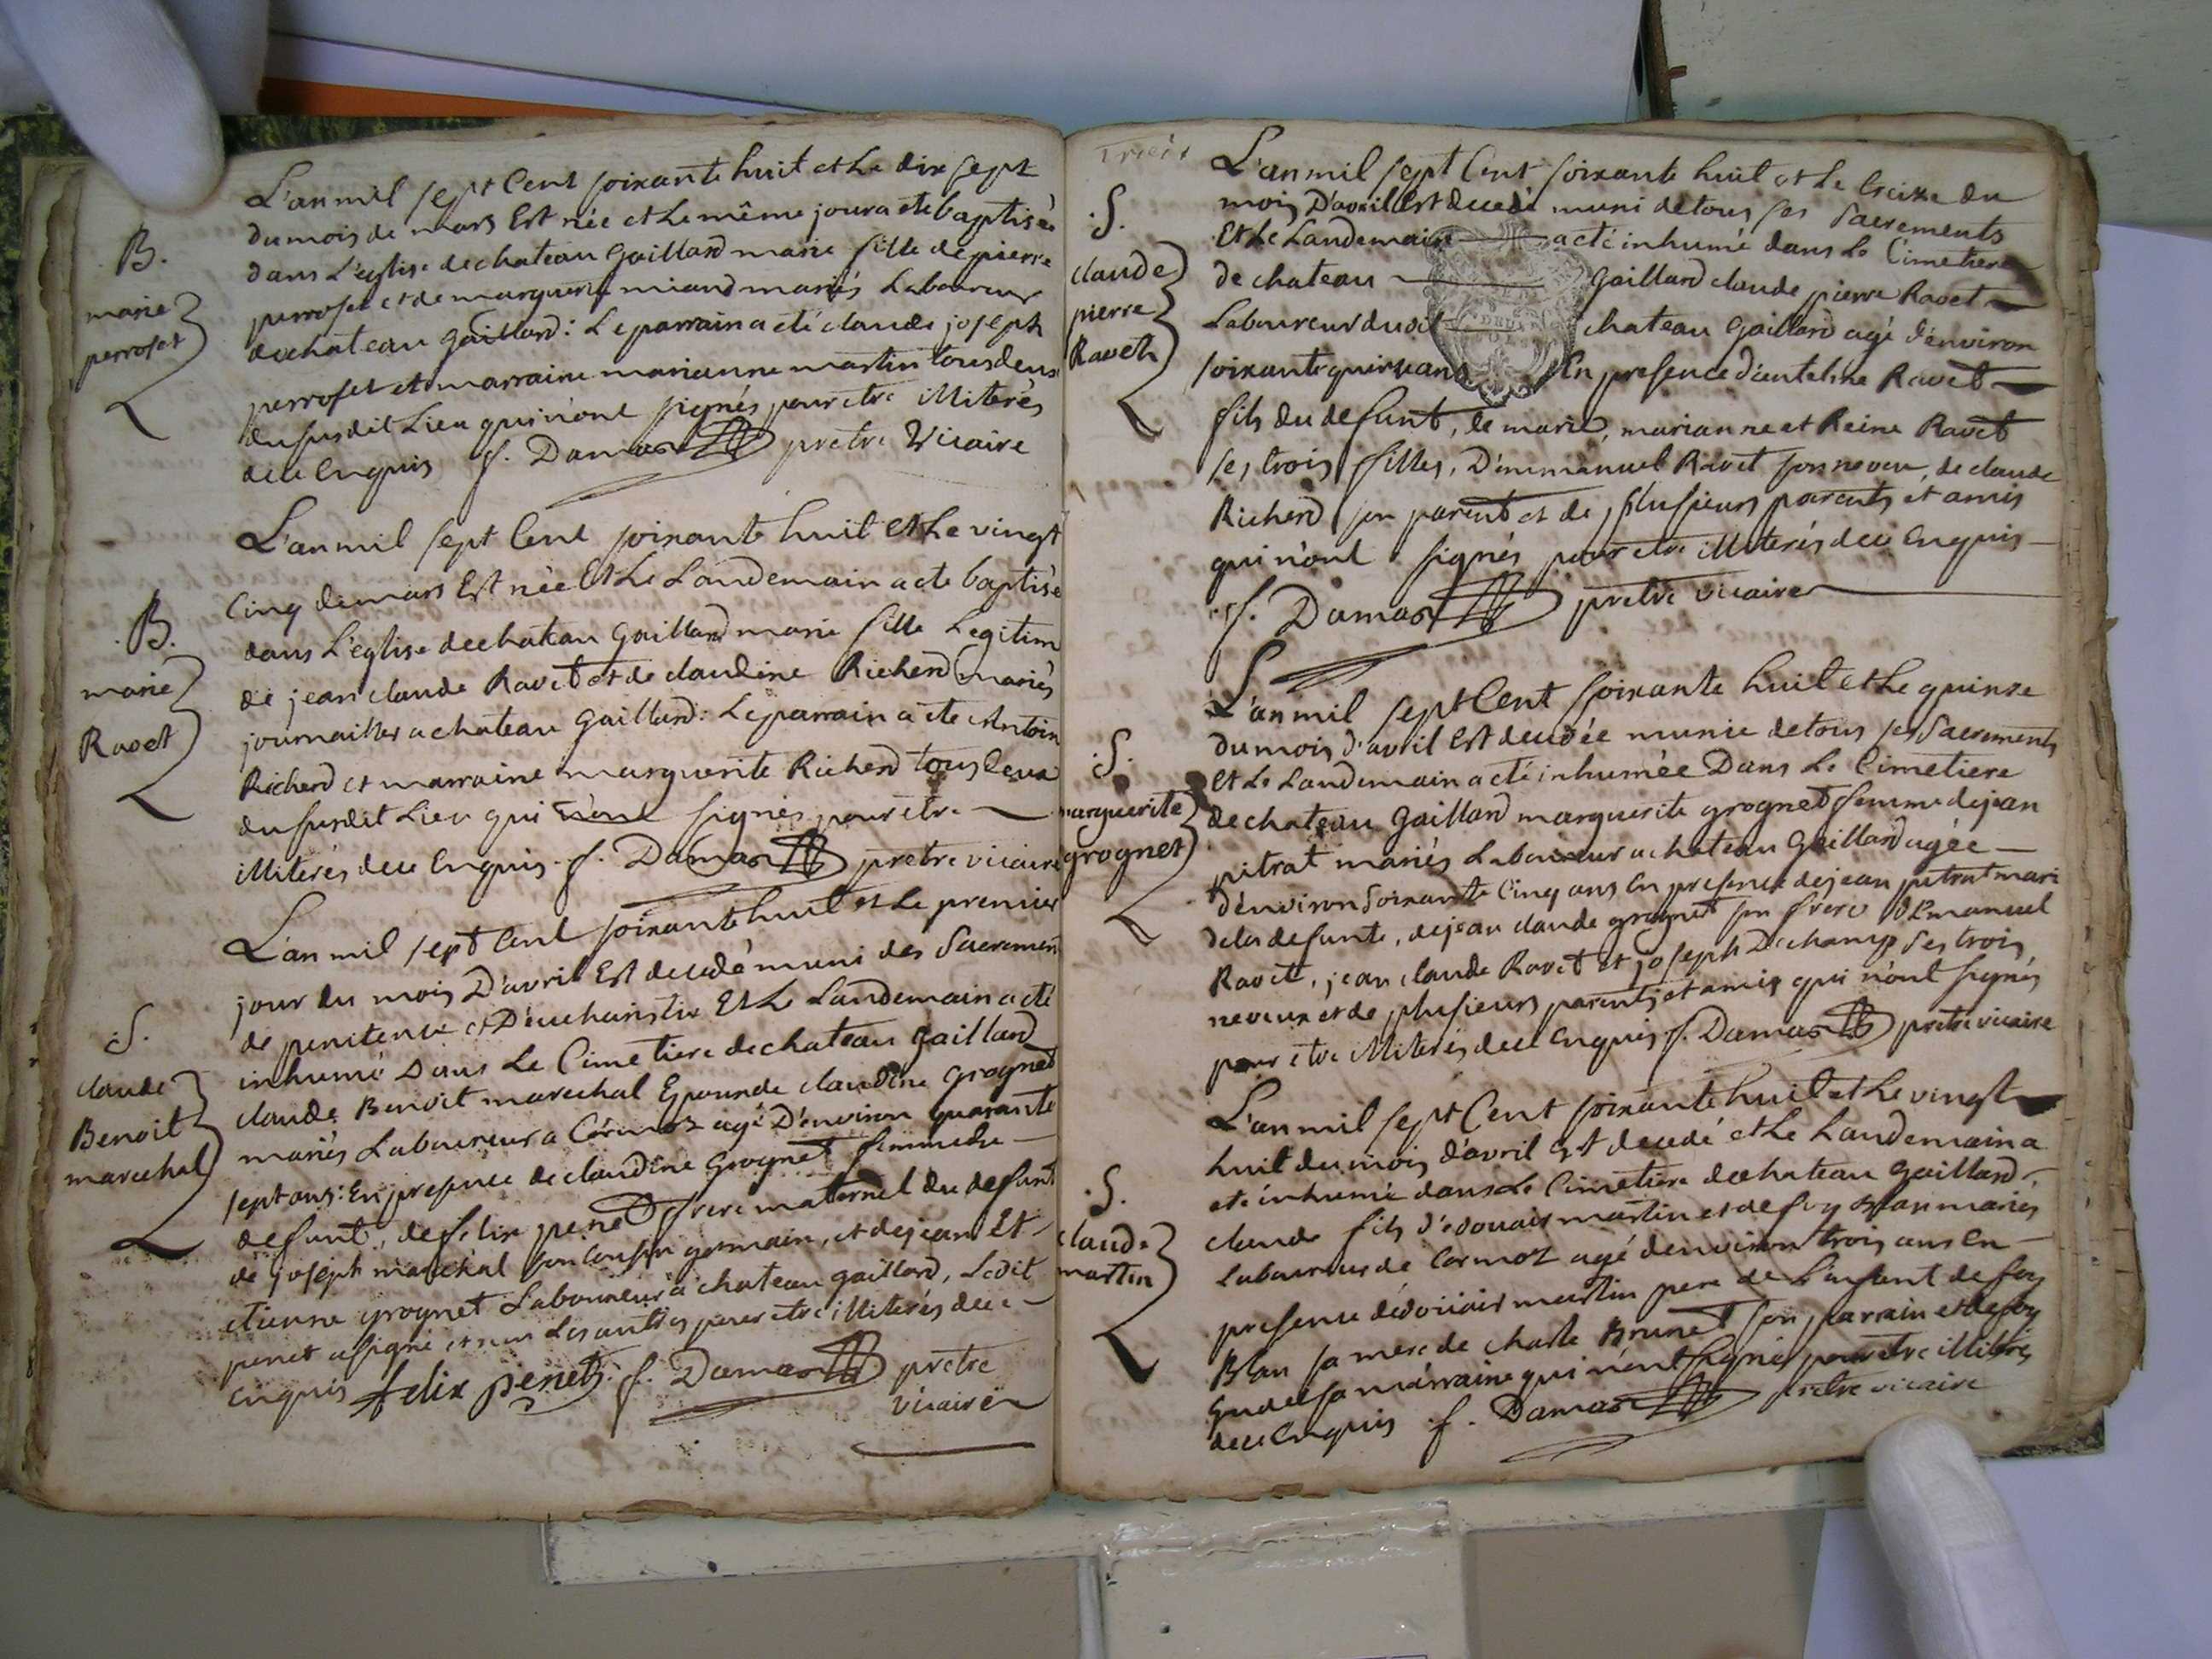 B.
marie
perroset
L'an mil sept Cent soixante huit et Le dix sept
du mois de mars Est née et Le même jour a été baptisée
dans L'église de chateau Gaillard marie fille de pierre
perroset et de marguerite miand mariés Laboureur
du chateau gaillard : Le parrain a été claude joseph
perroset et marraine marianne martin tous deux
du susdit Lieu qui n'ont signés pour etre illiterés
de ce Enquis f. Damas pretre Vicaire
B.
marie
Ravet
L'an mil sept Cent soixante huit et Le vingt
Cinq de mars Est née Et Le Landemain a eté baptisé
dans L'église de chateau Gaillard marie fille Legitim
de jean claude Ravet et de claudine Richerd mariés
journaillier a chateau Gaillard : Le parrain a été Antoin
Richerd et marraine marguerite Richerd tous deux
du susdit Lieu qui n'ont signés pour etre
illiterés de ce Enquis. f. Damas pretre vicaire
S.
claude
Benoit
marechal
L'an mil sept Cent soixante huit et Le premier
jour du mois D'avril Est decedé muni des Sacremen
de penitence et D'eucharistie Et Le Landemain a été
inhumé Dans Le Cimetiere de chateau gaillard
claude Benoit marechal Epoux de claudine grognet
mariés Laboureur a Cormoz agé D'environ quarante
sept ans : En presence de claudine Grognet femme du
defunt, de felix penet frere maternel du defunt
de joseph maréchal son Cousin germain, et de jean Et
etienne grognet Laboureur à chateau gaillard, Ledit
penet a signé et non Les autres pour etre illiterés de ce
Enquis felix penet. f. Damas pretre
vicaire
S.
claude
pierre
Raveth
L'an mil sept Cent soixante huit et Le treize du
mois D'avril Est decedé muni de tous ses Sacrements
Et Le Landemain a eté inhumé dans Le Cimetiere
de chateau Gaillard claude pierre Ravet
Laboureur dudit chateau Gaillard agé d'environ
soixante quinze ans En presence d'antelme Ravet
fils du defunt, de marie, marianne et Reine Ravet
ses trois filles, D'emmanuel Ravet son neveu, de claude
Richerd son parent et de plusieurs parents et amis
qui n'ont signés pour etre illiterés de ce Enquis
f. Damas pretre vicaire
S.
marguerite
grognet
L'an mil sept Cent soixante huit et Le quinze
du mois d'avril Est decedée munie de tous ses Sacrements
Et Le Landemain a eté inhumée Dans Le Cimetiere
de chateau Gaillard marguerite grognet femme de jean
pitrat mariés Laboureur a chateau Gaillard agée
d'environ soixante Cinq ans En presence de jean pitrat mari
de la defunte, de jean claude grognet son frere d'Emanuel
Ravet, jean claude Ravet et joseph Dechamp ses trois
neveux et de plusieurs parents et amis qui n'ont signés
pour etre illiterés de ce Enquis f. Damas pretre vicaire
S.
claude
martin
L'an mil sept Cent soixante huit et Le vingt
huit du mois d'avril Est decedé et Le Landemain a
eté inhumé dans Le Cimetiere de chateau gaillard
claude fils d'edouard martin et de foy Blan mariés
Laboureurs de Cormoz agé d'environ trois ans En
presence d'edoüard martin pere de L'enfant de foy
Blan sa mere de charle Brunet son parrain et de foy
sa marraine qui n'ont signés pour etre illiterés
de ce Enquis f. Damas pretre vicaire